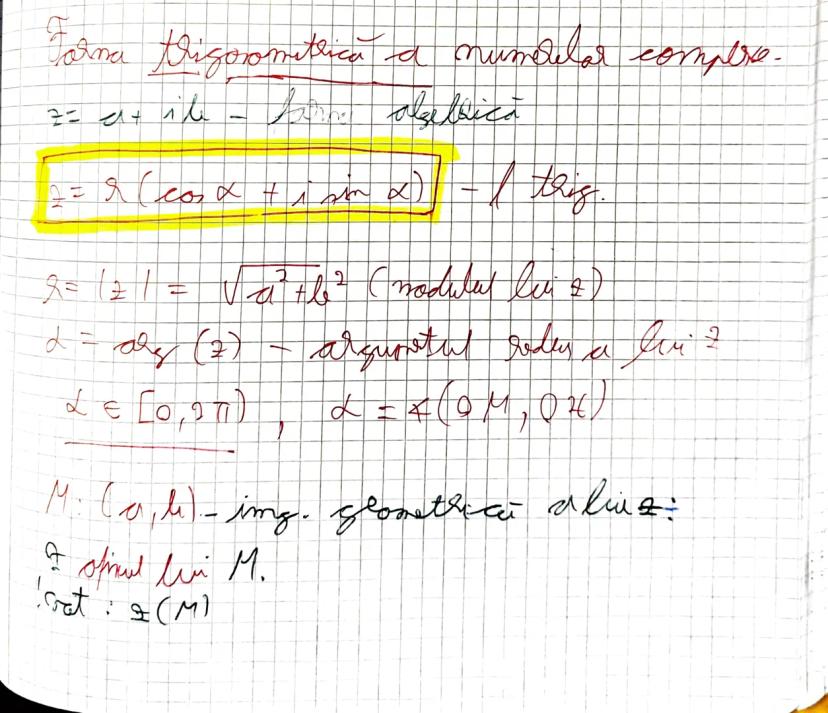 Forma trigonometrică a numerelor complexe.
z = a + ib - forma algebrică
z = r (cos α + i sin α) - f trig.
r = |z| = √a²+b² (modulul lui z)
α = arg (z) - argumetul redus a lui z
α ∈ [0, 2π), α = ∢(OM, Ox)
M: (a, b) - img. geometrică a lui z:
z afixul lui M.
Not : z(M)